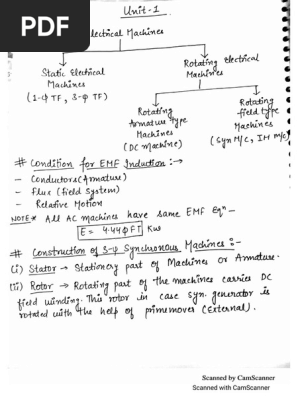 PDF
Unit-1
Electrical Machines
Static Electrical Machines
(1-φ TF, 3-φ TF)
Rotating Electrical Machines
Rotating Armature type Machines
(DC Machine)
Rotating field type Machines
(Syn M/c, IM M/c)
# Condition for EMF Induction :-→
- Conductors (Armature)
- Flux (field System)
- Relative Motion
NOTE* All AC machines have same EMF Eqn -
E = 4.44 φ F T Kw
# Construction of 3-φ Synchronous Machines :-
(i) Stator → Stationery part of Machines or Armature.
(ii) Rotor → Rotating part of the machines carries DC
field winding. This rotor in case syn. generator is
rotated with the help of primemover (External).
Scanned by CamScanner
Scanned with CamScanner